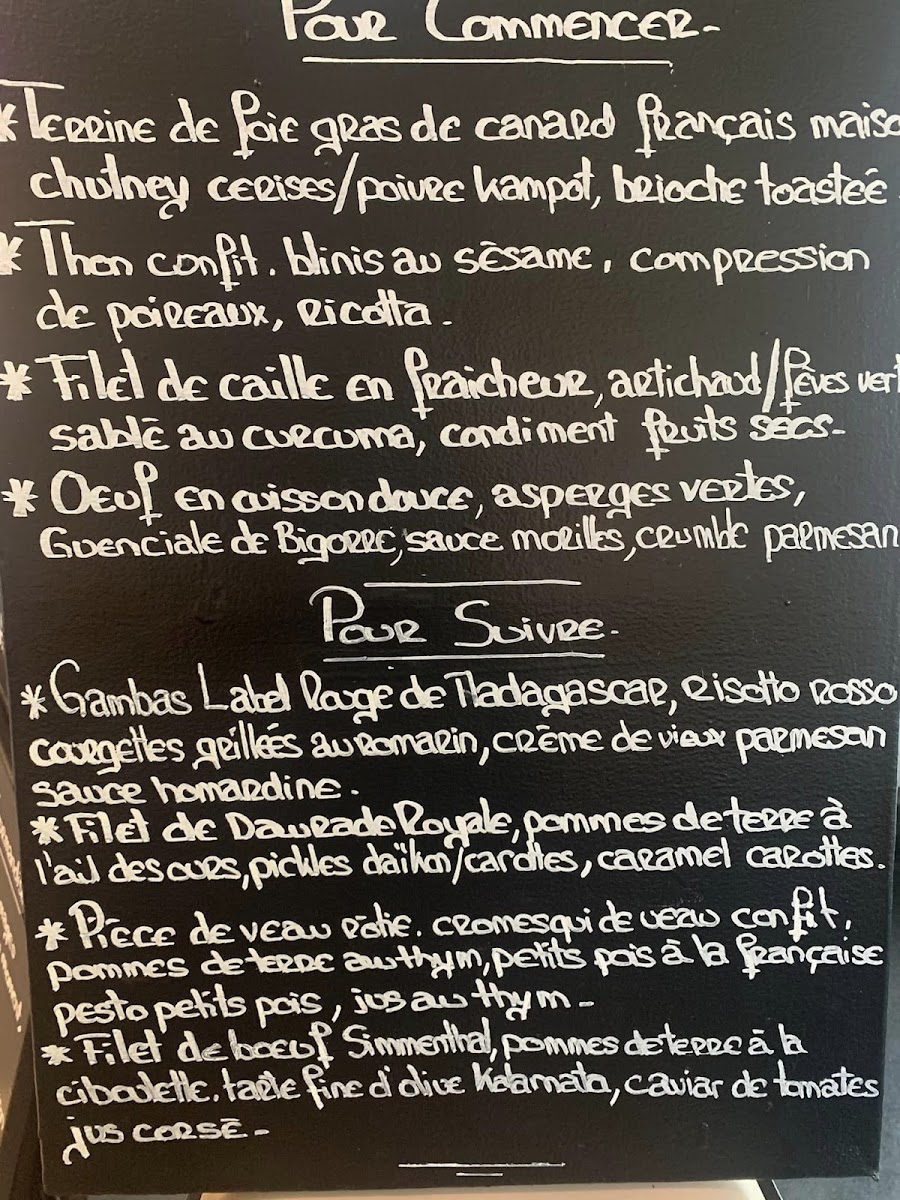 Pour Commencer-
*Terrine de foie gras de canard français maiso
chutney cerises/poivre kampot, brioche toasteé.
* Thon confit. blinis au sésame, compression
de poireaux, ricotta.
* Filet de caille en fraicheur, artichaud/fèves vert
sablé au curcuma, condiment fruits secs-
* Oeuf en cuisson douce, asperges vertes,
Guenciale de Bigorre, sauce morilles, crumble parmesan
Pour Suivre-
*Gambas Label Rouge de Madagascar, risotto rosso
courgettes grilleés au romarin, crème de vieux parmesan
sauce homardine.
*Filet de Daurade Royale, pommes de terre à
l'ail des ours, pickles daïkon/carottes, caramel carottes.
* Pièce de veau rôtie. cromesqui de veau confit,
pommes de terre au thym, petits pois à la française
pesto petits pois, jus au thym-
* Filet de boeuf Simmenthal, pommes de terre à la
ciboulette. tarte fine d'olive Kalamata, caviar de tomates
jus corsé-